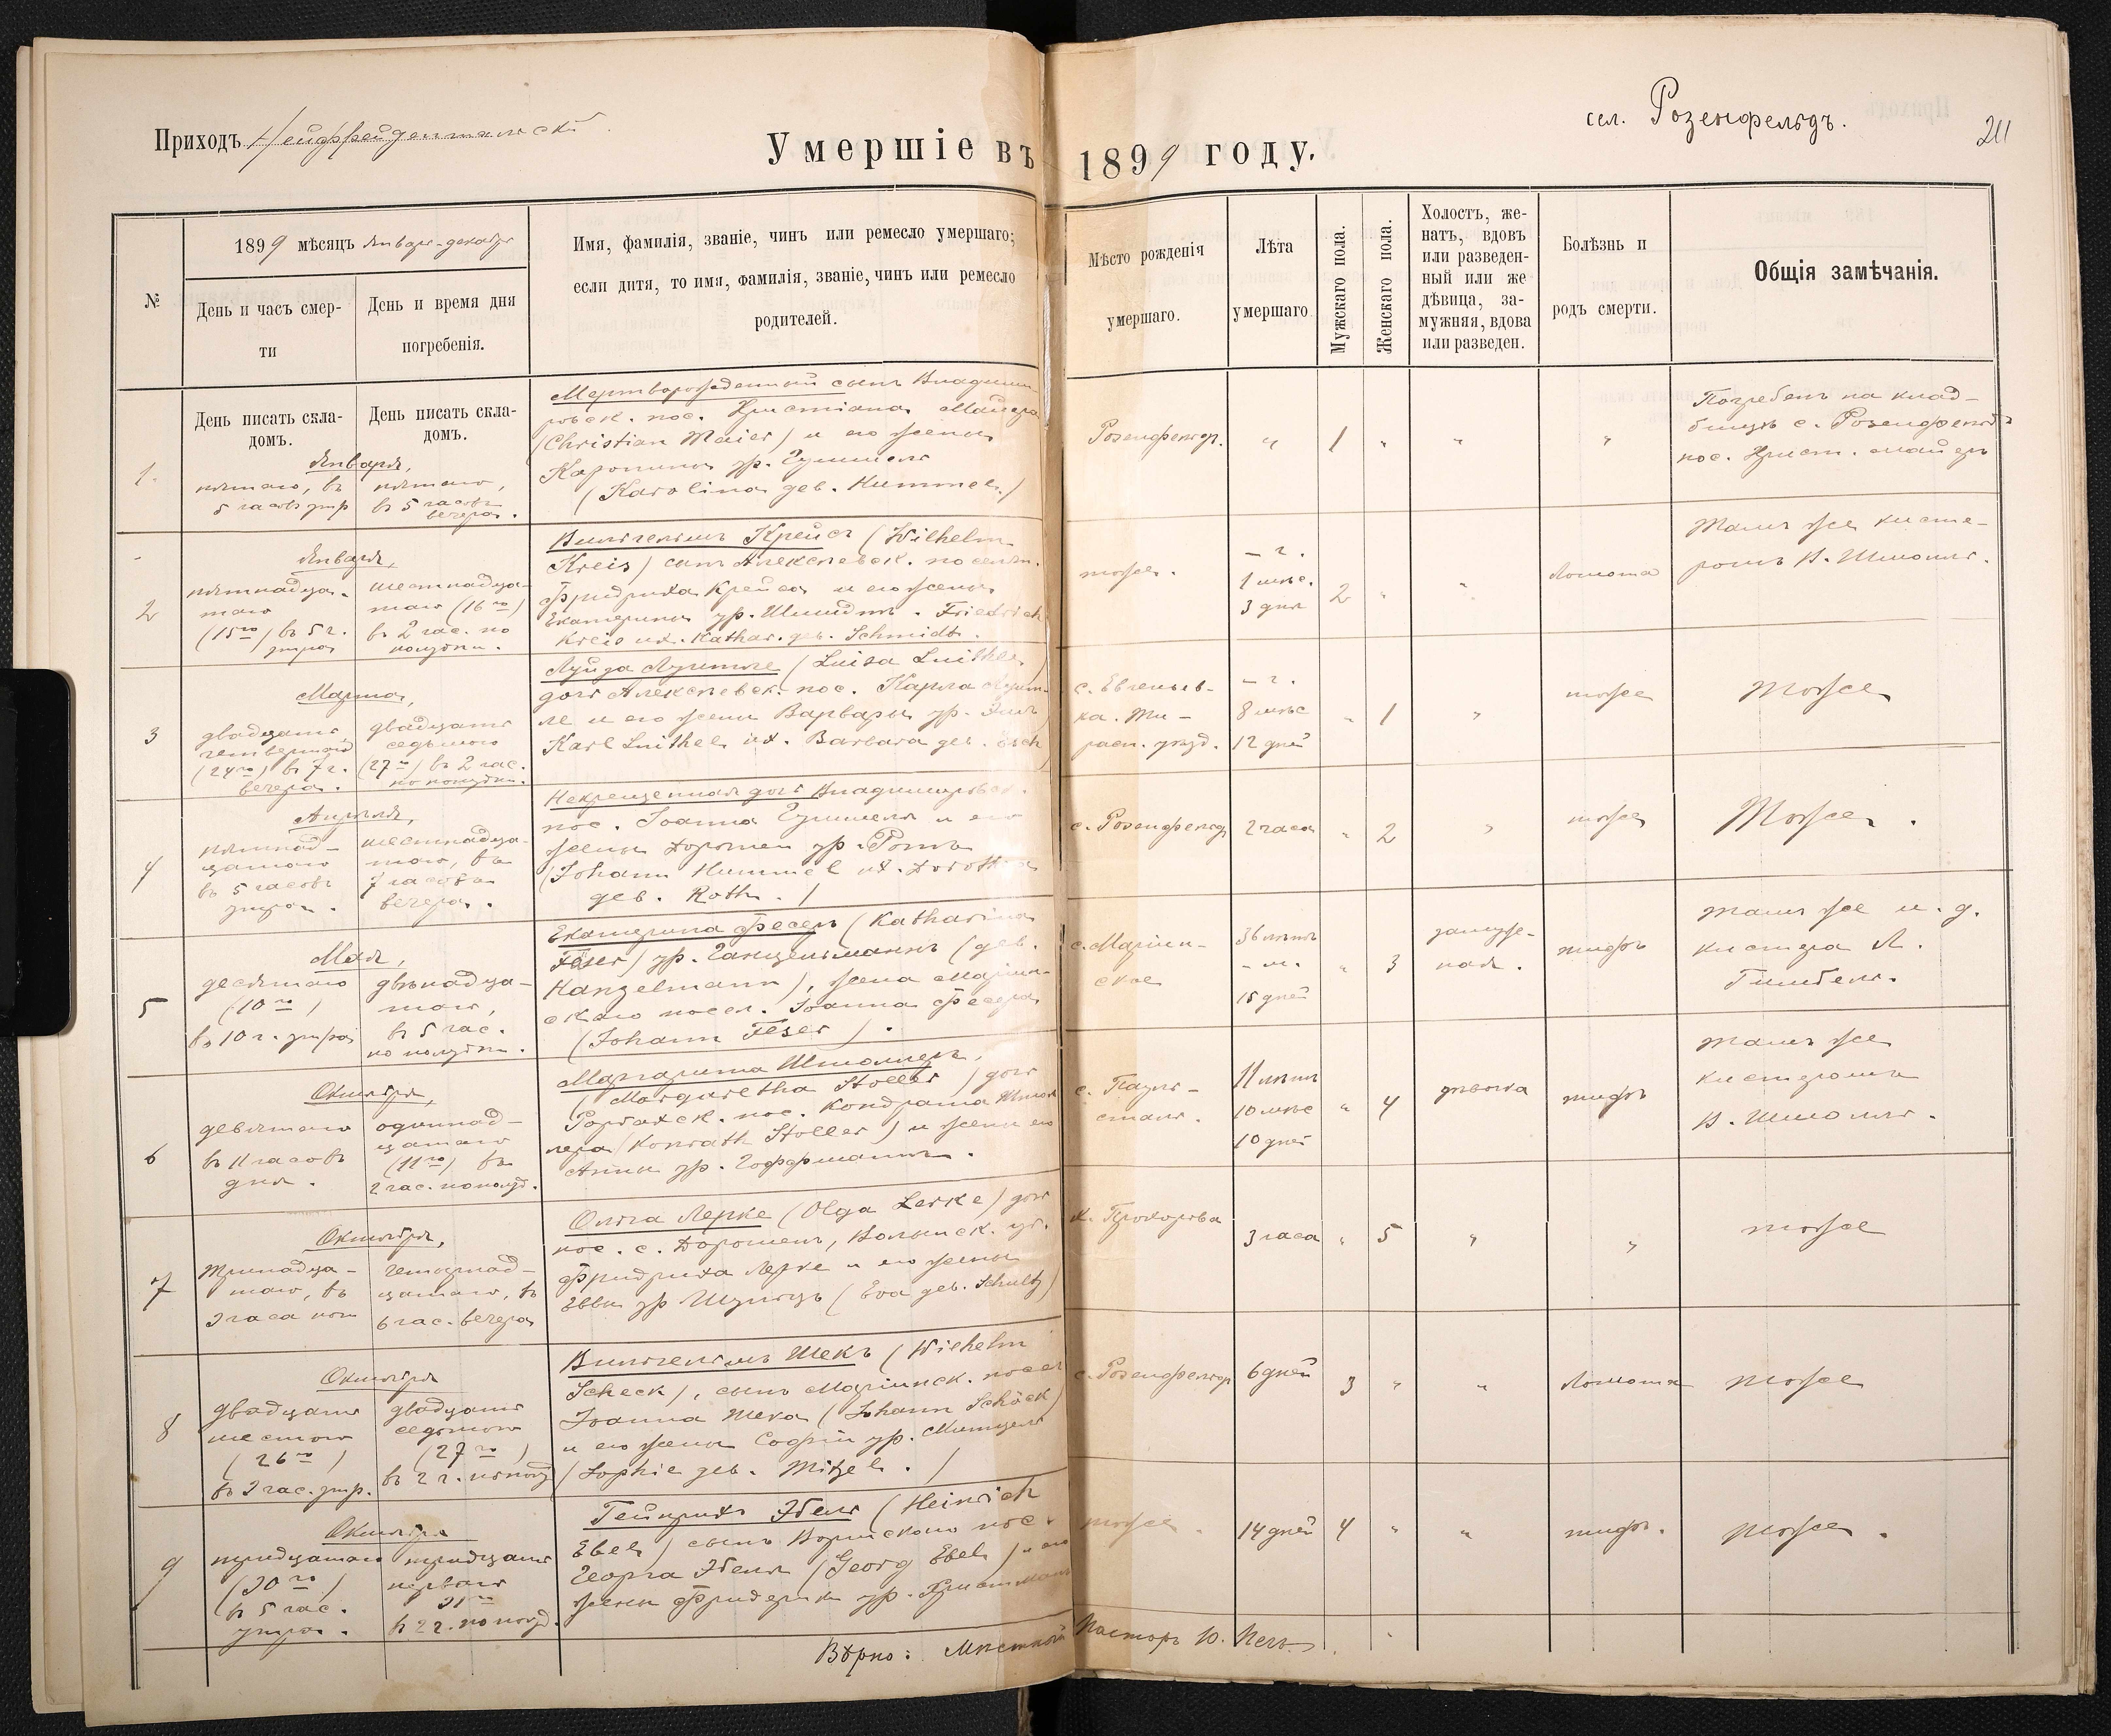 Приходъ Нейфрейдентальскій
Умершіе въ 1899 году.
сел. Розенфельдъ.
211
№
1899 мѣсяцъ Январь-декабрь
День и часъ смер-
ти
День и время дня
погребенія.
Имя, фамилія, званіе, чинъ или ремесло умершаго;
если дитя, то имя, фамилія, званіе, чинъ или ремесло
родителей.
Мѣсто рожденія
умершаго.
Лѣта
умершаго
Мужскаго пола.
Женскаго пола.
Холостъ, же-
натъ, вдовъ
или разведен-
ный или же
дѣвица, за-
мужняя, вдова
или разведен.
Болѣзнь и
родъ смерти.
Общія замѣчанія.
День писать скла-
домъ.
День писать скла-
домъ.
1.
Января,
пятаго, въ
5 часовъ утр
пятаго,
въ 5 часовъ
вечера.
Мертворожденный сынъ Владими-
ровск. пос. Христіана Майера
(Christian Maier) и его жены
Каролины ур. Гуммель
(Karolina geb. Hummel.)
Розенфельд.
"
1
"
"
"
Погребенъ на клад-
бищѣ с. Розенфельдъ
пос. Христ. Майеръ
2
Января,
пятнадца-
таго
(15го) въ 5 ч.
утра
шестнадца-
таго (16го)
въ 2 час. по
полудни.
Вильгельмъ Крейсъ (Wilhelm
Kreis) сынъ Алексѣевск. поселян.
Фридриха Крейса и его жены
Екатерины ур. Шмидтъ. Friedrich
Kreis ud. Kathar. geb. Schmidt.
тоже.
- г.
1 мѣс.
3 дня
2
"
"
Ломота
Тамъ же кисте-
ромъ В. Штоллъ.
3
Марта,
двадцать
четвертаго
(24го) въ 7 ч.
вечера.
двадцать
седьмого
(27го) въ 2 час.
по полудни.
Луиза Луитле (Luisa Luithle)
дочь Алексѣевск. пос. Карла Луит-
ле и его жены Варвары ур. Эшъ
Karl Luithle ud. Barbara geb. Esch
с. Евгеньев-
ка. Ти-
расп. уѣзд.
- г.
8 мѣс
12 дней
"
1
"
тоже
Тоже
4
Апрѣля,
пятнад-
цатаго
въ 5 часовъ
утра.
шестнадца-
таго, въ
7 часовъ
вечера.
Некрещенная дочь Владимировск.
пос. Іоанна Гуммеля и его
жены Доротеи ур. Ротъ
(Johann Hummel ud. Dorothea
geb. Roth.)
с. Розенфельд
2 часа
"
2
"
тоже
Тоже.
5
Мая,
десятаго
(10го)
въ 10 ч. утра
двѣнадца-
таго,
въ 5 час.
по полудни.
Екатерина Фесеръ (Katharina
Feser) ур. Ганцельманнъ (geb.
Hanzelmann), жена Маріин-
скаго посел. Іоанна Фесера
(Johann Feser).
с. Маріин-
ское
36 лѣтъ
- м.
15 дней
"
3
замуж-
няя.
тифъ
тамъ же и. д.
кистера Л.
Гимбель.
6
Октября,
девятаго
въ 11 часовъ
дня.
одиннад-
цатаго
(11го) въ
2 час. по полуд.
Маргарита Штоллеръ,
(Margaretha Stoller) дочь
пос. Кондрата Штол-
лера (Konrath Stoller) и жены его
Анны ур. Гоффманнъ.
с. Пауль-
сталь.
11 лѣтъ
10 мѣс
10 дней
"
4
дѣвица
тифъ
тамъ же
кистеромъ
В. Штоллъ.
7
Октября,
тринадца-
таго, въ
3 часа
четырнад-
цатаго, въ
6 час. вечера
Ольга Лерке (Olga Lerke) дочь
пос. с. Дорошенъ, Волынск. гб.
Фридриха Лерке и его жены
Евы ур Шульцъ (Eva geb. Schultz)
х. Прохорова
3 часа
"
5
"
"
тоже
8
Октября
двадцать
шестого
(26го)
въ 3 час. утр.
двадцать
седьмого
(27го)
въ 2 ч. по полд
Вильгельмъ Шекъ (Wilhelm
Scheck), сынъ Маріинск. посел
Іоанна Шека (Johann Schöck)
и его жены Софіи ур. Митцель
(Sophie geb. Mitzel.)
с. Розенфельд
6 дней
3
"
"
Ломота
тоже
9
Октября
тридцатаго
(30го)
въ 5 час.
утра.
тридцать
перваго
31го
въ 2 ч. по полд.
Гейнрихъ Эбель (Heinrich
Ebel) сынъ пос.
Георга Эбеля (Georg Ebel) и его
жены Фридерики ур. Христманъ
тоже.
14 дней
4
"
"
тифъ.
тоже.
Вѣрно: Мѣстный Пасторъ Ю. Печъ